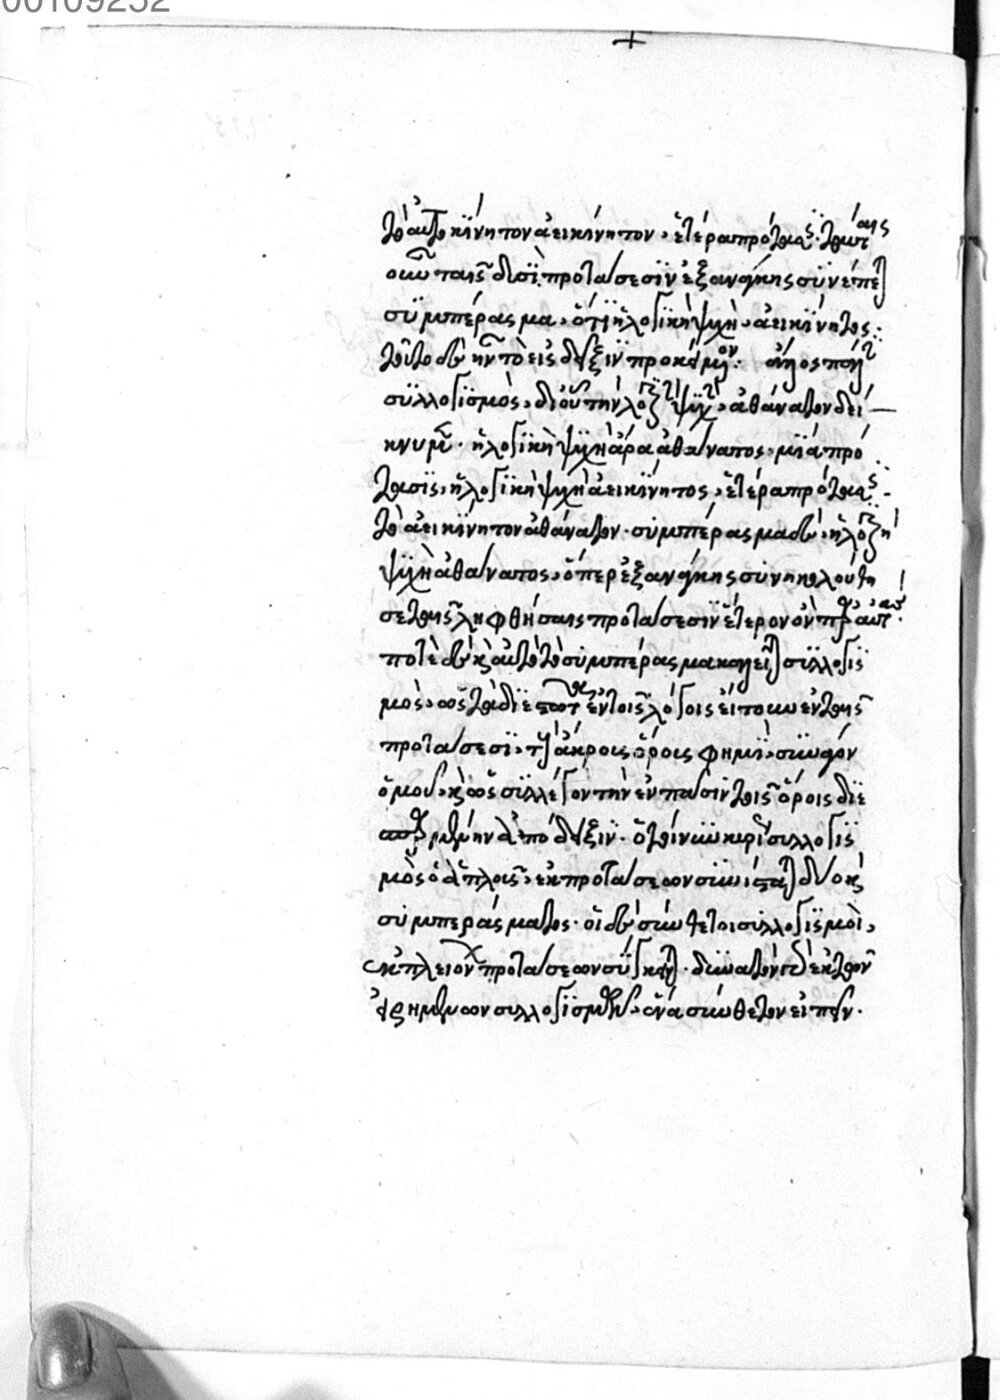 00109252
+
τὸ αὐτοκίνητον ἀεικίνητον, ἑτέρα πρότασϊς· ταύταις
οὖν ταῖς δυσὶ προτάσεσϊν ἐξ ανάγκης σϋνέπεται
σϋμπέρασμα, ὅτι ἡ λογϊκὴ ψυχὴ, ἀεικϊνητος:
τοῦτο δὲ ἦν τὸ εἰς δεῖξϊν προκείμενον:
σϋλλογϊσμὸς, δι οὗ τὴν λογϊκὴν ψυχὴν, ἀθάνατον δεί
κνυμεν· ἡ λογϊκὴ ψυχὴ ἄρα ἀθάνατος· μϊὰ πρό
τασϊς, ἡ λογϊκὴ ψυχὴ ἀεικϊνητος, ἑτέρα πρότασϊς
τὸ ἀεικϊνητον ἀθάνατον· σύμπέρασμα δὲ, ἡ λογϊκὴ
ψυχὴ ἀθάνατος, ὅπερ ἐξ ανάγκης σύνηκολούθη
σε ταῖς ληφθήσαις προτάσεσϊν ἕτερον ὂν παρ αὐτάς·
ποτὲ δὲ καὶ αὐτὸ τὸ σύμπέρασμα καλεῖται σϋλλογϊσ
μὸς, ὡς τὰ δϊεσπαρμένα ἐν τοῖς λόγοις εἴτουν ἐν ταῖς
προτάσεσϊ, τοῖς ἄκροις ὅροις φημϊ, σϋνάγον
ὁμοῦ, καὶ ὡς σϋλλέγον τὴν ἐν πᾶσϊν τοῖς ὅροις δϊε
σπαρμένην ἀπόδειξϊν· ὅταν οὖν κυρίως σϋλλογϊσ
μὸς ὁ ἁπλοῦς, ἐκ προτάσεων συνίσταται δύο καὶ
σύμπεράσματος· οἱ δὲ σύνθετοι σύλλογϊσμοὶ,
ἐκ πλειόνων προτάσεων σύγκεινται· δυνατὸν δὲ ἐκ τῶν
εἰρημένων συλλογϊσμῶν, ἕνα σύνθετον εἰπεῖν·